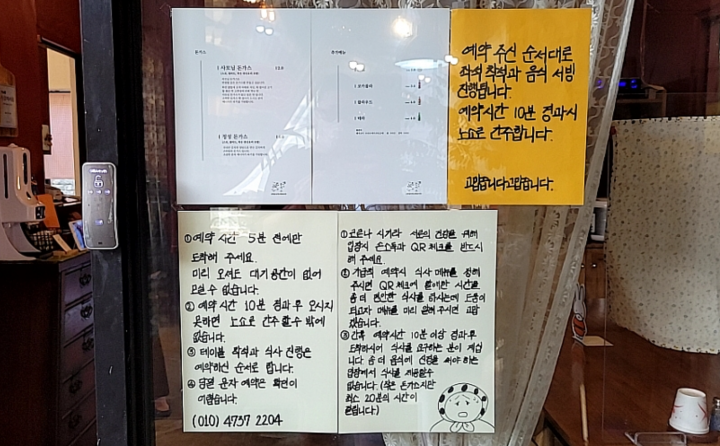 돈가스
1 사모님 돈가스
1 정성 돈가스
추가메뉴
예약 주신 순서대로
좌석 착석과 음식 서빙
진행됩니다.
예약시간 10분 경과시
노쇼로 간주합니다.
고맙습니다고맙습니다.
①예약 시간 5분 전에만
도착해 주세요.
미리 오셔도 대기공간이 없어
모실 수 없습니다.
② 예약시간 10분 경과후 오시지
못하면 노쇼로 간주할수 밖에
없습니다.
③ 테이블 착석과 식사 진행은
예약하신 순서로 합니다.
④ 당일 문자 예약은 확인이
어렵습니다.
(010) 4737 2204
①코로나 시기라 서로의 건강을 위해
입장시 손소독과 QR체크를 반드시
해 주세요.
② 가급적 예약시 식사 메뉴를 정해
주시면 QR체크에 할애한 시간을
좀 더 편안한 식사를 하시는데 도움이
되고자 메뉴를 미리 정해 주시면 고맙
겠습니다.
③ 간혹 예약시간 10분이상 경과후
도착하시어 식사를 요구하는 분이 계십
니다 좀 더 음식에 신경을 써야 하는
입장에서 식사를 제공할수
없습니다 (작은 돈가스지만
최소 20분의 시간이
걸립니다)